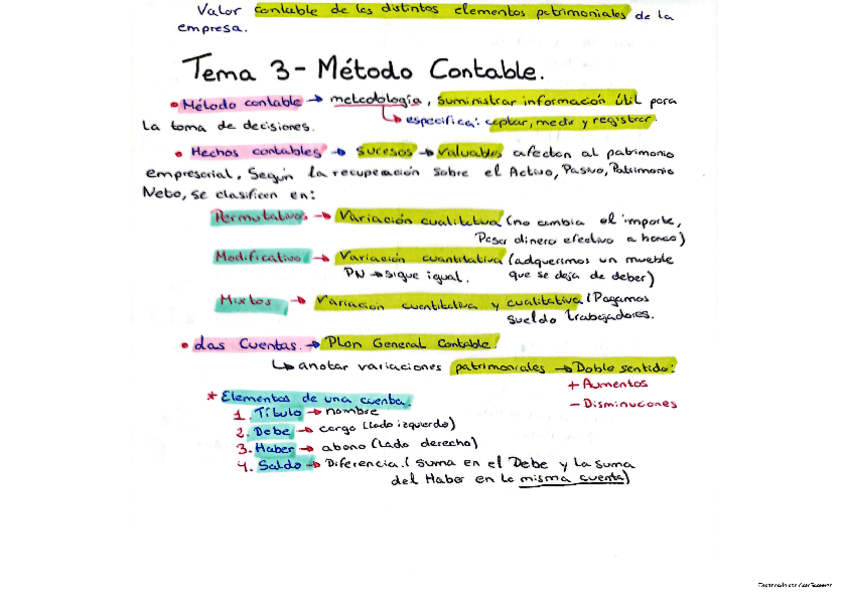 Valor contable de los distintos elementos patrimoniales de la
empresa.
Tema 3 - Método Contable.
• Método contable → metodología, suministrar información útil para
↳ especifica: captar, medir y registrar.
la toma de decisiones.
• Hechos contables → sucesos → valuables afectan al patrimonio
empresarial, según la recuperación sobre el Activo, Pasivo, Patrimonio
Neto, se clasifican en:
Permutativos → Variación cualitativa (no cambia el importe,
Pasar dinero efectivo a banco)
Modificativo → Variación cuantitativa (adquerimos un mueble
PN → sigue igual. que se deja de deber)
Mixtos → Variación cuantitativa y cualitativa (Pagamos
sueldo trabajadores.
• Las Cuentas. → Plan General Contable.
↳ anotar variaciones patrimoniales → Doble sentido:
+ Aumentos
* Elementos de una cuenta.
- Disminuciones
1. Título → nombre
2. Debe → cargo (lado izquierdo)
3. Haber → abono (lado derecho)
4. Saldo → Diferencia. ( suma en el Debe y la suma
del Haber en la misma cuenta)